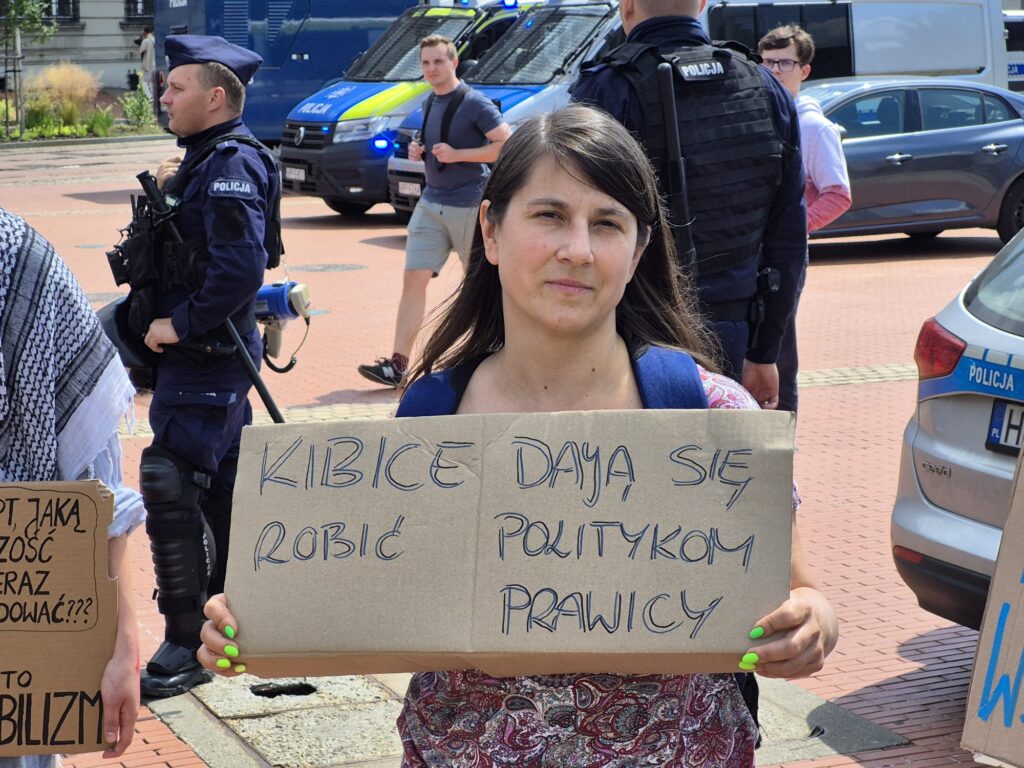 POLICJA
POLICJA
POLICJA
POLICJA
POLICJA
PL H
cee'd
KIBICE DAJĄ SIĘ
ROBIĆ POLITYKOM
PRAWICY
JAKĄ
ZOŚĆ
ERAZ
DOWAĆ???
TO
BILIZM
W